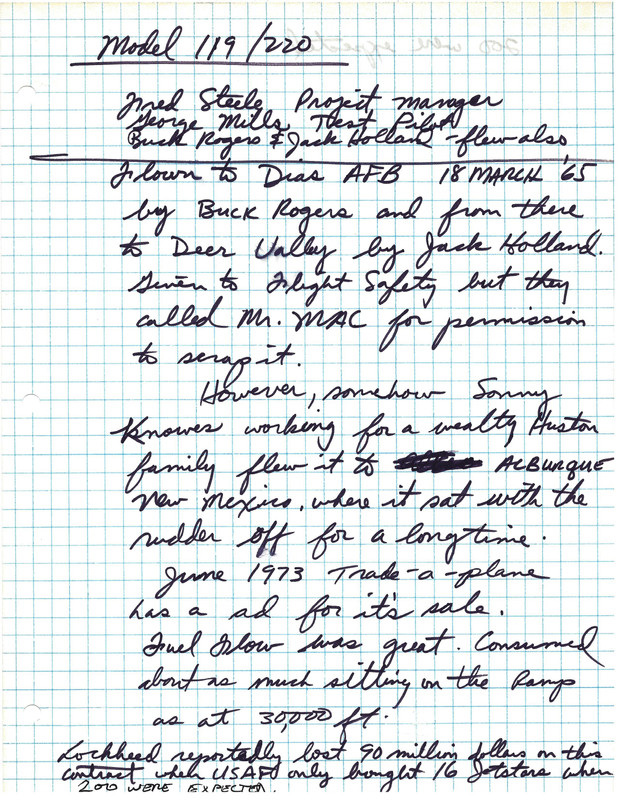 Model 119/220
Fred Steele, Project manager
George Mills, Test Pilot
Buck Rogers & Jack Holland - flew also
Flown to Dias AFB 18 MARCH '65
by Buck Rogers and from there
to Deer Valley by Jack Holland.
Given to Flight Safety but they
called Mr. MAC for permission
to scrap it.
However, somehow Sonny
Knowes working for a wealty Huston
family flew it to ALBURQUE
New Mexico, where it sat with the
rudder off for a long time.
June 1973 Trade-a-plane
has a ad for it's sale.
Fuel Flow was great. Consumed
about as much sitting on the Ramp
as at 30,000 ft.
Lockheed reportedly lost 90 million dollars on this
contract when USAF only bought 16 Jetstars when
200 WERE EXPECTED.